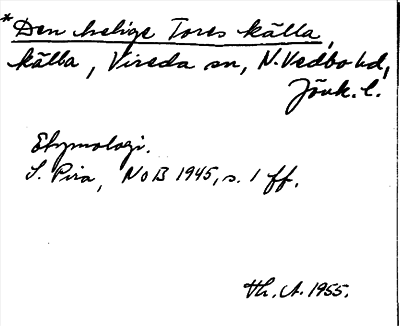 *Den helige Tores källa,
källa, Vireda sn, N. Vedbo hd,
Jönk. l.
Etymologi.
S. Pira, NoB 1945, s. 1 ff.
Th. A. 1955.